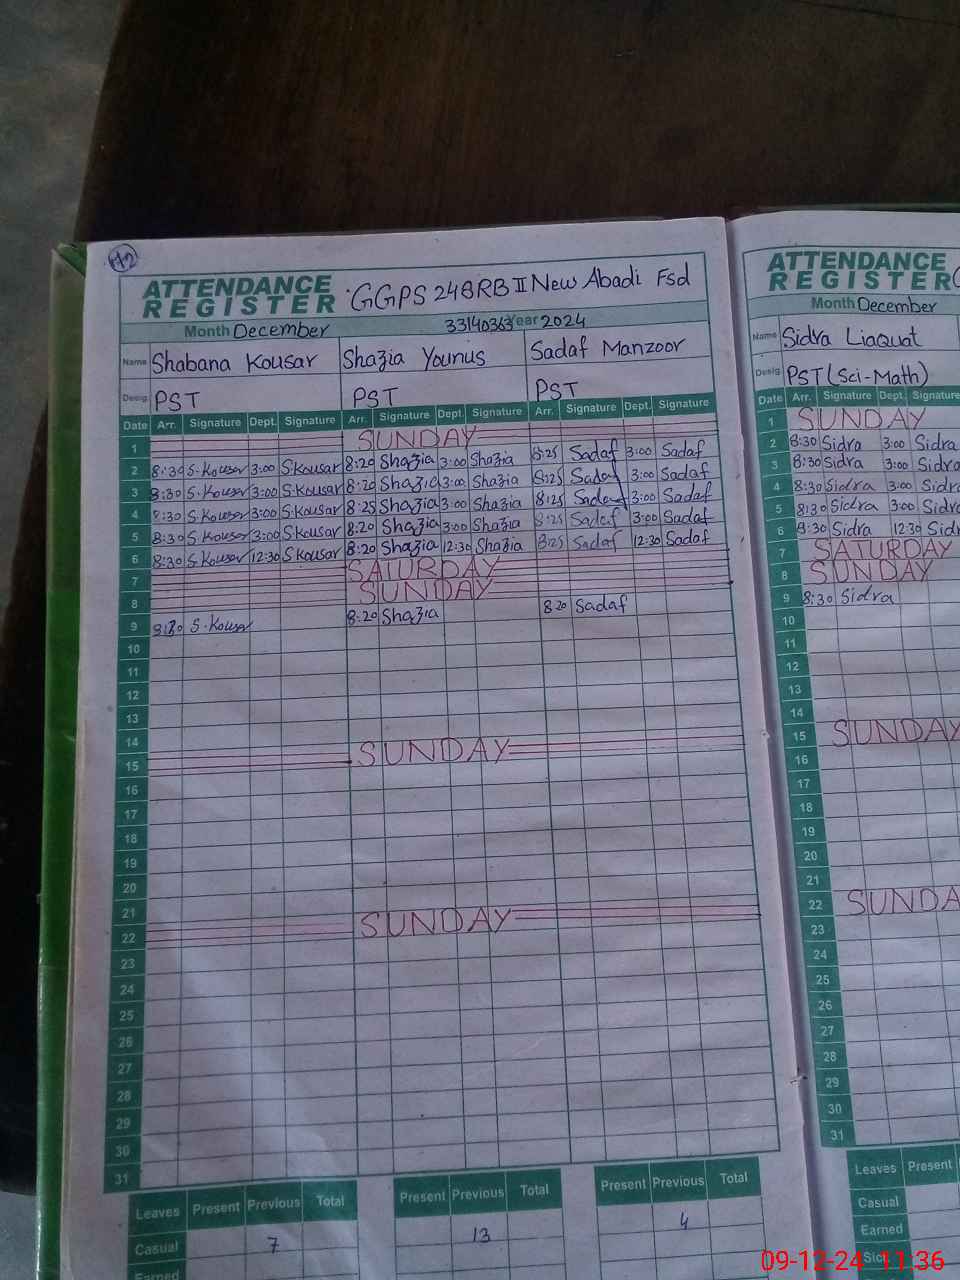 112
ATTENDANCE
REGISTER
GGPS 248RB II New Abadi Fsd
Month December 33140363 Year 2024
Name Shabana Kousar Shazia Younus Sadaf Manzoor
Desig. PST PST PST
Date Arr. Signature Dept. Signature Arr. Signature Dept. Signature Arr. Signature Dept. Signature
1 SUNDAY
2 8:30 S.Kousar 3:00 S.Kousar 8:20 Shazia 3:00 Shazia 8:25 Sadaf 3:00 Sadaf
3 8:30 S.Kousar 3:00 S.Kousar 8:20 Shazia 3:00 Shazia 8:25 Sadaf 3:00 Sadaf
4 8:30 S.Kousar 3:00 S.Kousar 8:25 Shazia 3:00 Shazia 8:25 Sadaf 3:00 Sadaf
5 8:30 S.Kousar 3:00 S.Kousar 8:20 Shazia 3:00 Shazia 8:25 Sadaf 3:00 Sadaf
6 8:30 S.Kousar 12:30 S.Kousar 8:20 Shazia 12:30 Shazia 8:25 Sadaf 12:30 Sadaf
7 SATURDAY
8 SUNDAY
9 S.Kousar 8:20 Shazia 8:20 Sadaf
10
11
12
13
14
15 SUNDAY
16
17
18
19
20
21
22 SUNDAY
23
24
25
26
27
28
29
30
31
Leaves Present Previous Total Present Previous Total Present Previous Total
Casual 7 13 4
Earned
ATTENDANCE
REGISTER
Month December
Name Sidra Liaquat
Desig. PST (Sci-Math)
Date Arr. Signature Dept. Signature
1 SUNDAY
2 8:30 Sidra 3:00 Sidra
3 8:30 Sidra 3:00 Sidra
4 8:30 Sidra 3:00 Sidra
5 8:30 Sidra 3:00 Sidra
6 8:30 Sidra 12:30 Sidr
7 SATURDAY
8 SUNDAY
9 8:30 Sidra
10
11
12
13
14
15 SUNDAY
16
17
18
19
20
21
22 SUNDA
23
24
25
26
27
28
29
30
31
Leaves Present
Casual
Earned
Sick
09-12-24 11:36